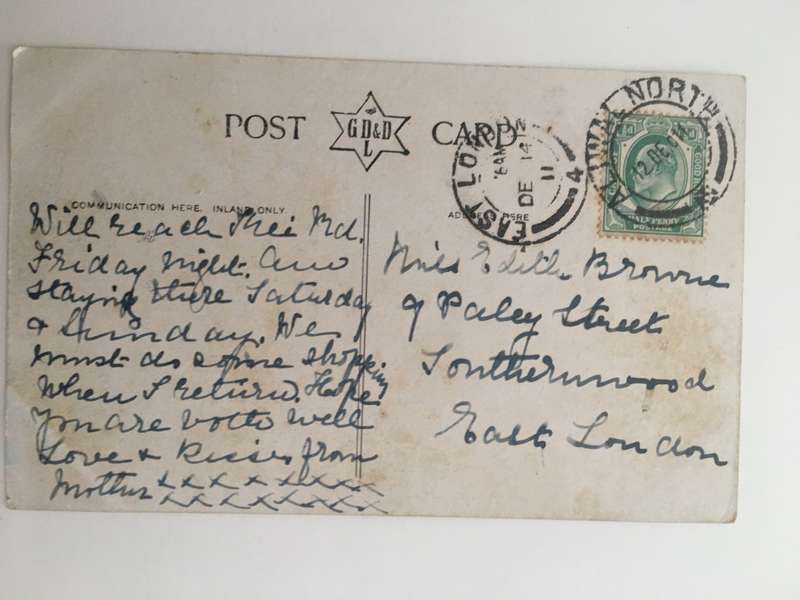 POST CARD
G D & D
L
COMMUNICATION HERE. INLAND ONLY.
ADDRESS HERE
EAST LONDON
DE 14
11
4
NORTH
12 DE
POSTAGE
Will reach Rd.
Friday night. Am
staying there Saturday
& Sunday. We
must do some shopping
when I return. Hope
you are both well
Love & Kisses from
Mother x x x x x x x x
x x x x x x x x
Miss Edith Browne
9 Paley Street
Southernwood
East London